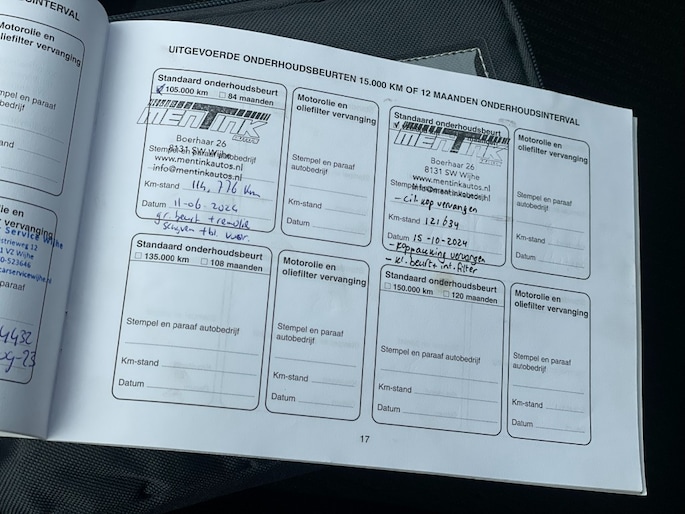 SINTERVAL
Motorolie en
oliefilter vervanging
mpel en paraaf
obedrijf
stand
um
rolie en
er vervanging
Service Wijhe
strieweg 12
VZ Wijhe
0-523646
carservicewijhe.nl
paraaf
4432
09-23
UITGEVOERDE ONDERHOUDSBEURTEN 15.000 KM OF 12 MAANDEN ONDERHOUDSINTERVAL
Standaard onderhoudsbeurt
105.000 km 84 maanden
MENTINK
AUTO'S
Boerhaar 26
8131 SW Wijhe
Stempel en paraaf autobedrijf
www.mentinkautos.nl
info@mentinkautos.nl
Km-stand 114,776 Km
Datum 11-06-2024
gr. beurt + remblok
schijven + bl. voor.
Motorolie en
oliefilter vervanging
Stempel en paraaf
autobedrijf
Km-stand
Datum
Standaard onderhoudsbeurt
MENTINK
AUTO'S
Boerhaar 26
8131 SW Wijhe
www.mentinkautos.nl
info@mentinkautos.nl
- cil. kop vervangen
Km-stand 121634
Datum 15-10-2024
- koppakking vervangen
- kl. beurt + int. filter
Motorolie en
oliefilter vervanging
Stempel en paraaf
autobedrijf
Km-stand
Datum
Standaard onderhoudsbeurt
135.000 km 108 maanden
Stempel en paraaf autobedrijf
Km-stand
Datum
Motorolie en
oliefilter vervanging
Stempel en paraaf
autobedrijf
Km-stand
Datum
Standaard onderhoudsbeurt
150.000 km 120 maanden
Stempel en paraaf autobedrijf
Km-stand
Datum
Motorolie en
oliefilter vervanging
Stempel en paraaf
autobedrijf
Km-stand
Datum
17